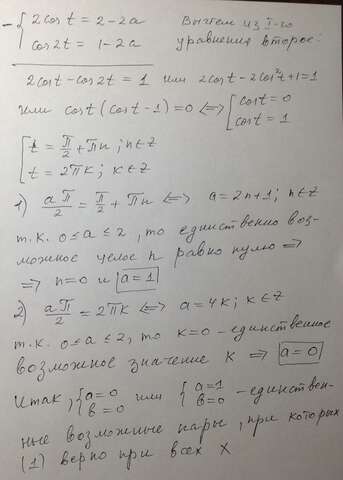 - { 2cost = 2-2a   Вычтем из I-го
cos2t = 1-2a   уравнения второе:
2cost-cos2t = 1 или 2cost-2cos²t+1=1
или cost(cost-1)=0 <=> [ cost=0
cost=1
[ t = π/2 + πn ; n∈Z
t = 2πk ; k∈Z
1) aπ/2 = π/2 + πn <=> a = 2n+1; n∈Z
т.к. 0≤a≤2, то единственно воз-
можное целое n равно нулю =>
=> n=0 и a=1
2) aπ/2 = 2πk <=> a = 4k; k∈Z
т.к. 0≤a≤2, то k=0 - единственное
возможное значение k => a=0
Итак, { a=0 или { a=1 - единствен-
в=0 в=0
ные возможные пары, при которых
(1) верно при всех x